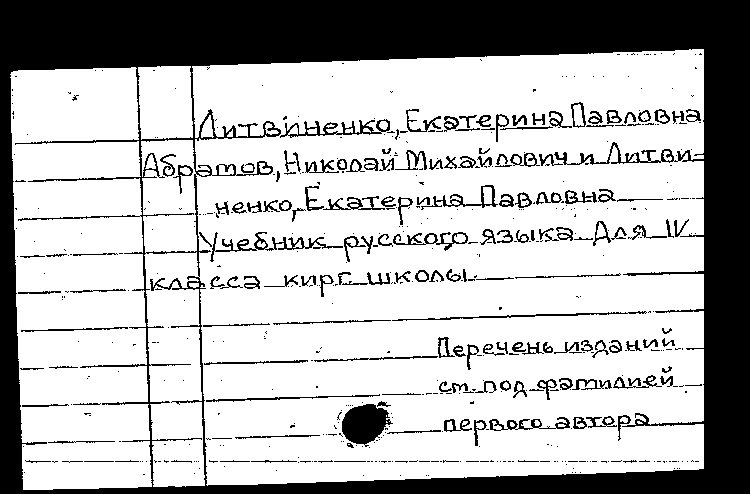 Литвиненко, Екатерина Павловна
Абратов, Николай Михайлович и Литви-
ненко, Екатерина Павловна
Учебник русского языка. Для IV
класса кирг. школы.
Перечень изданий
см. под фамилией
первого автора